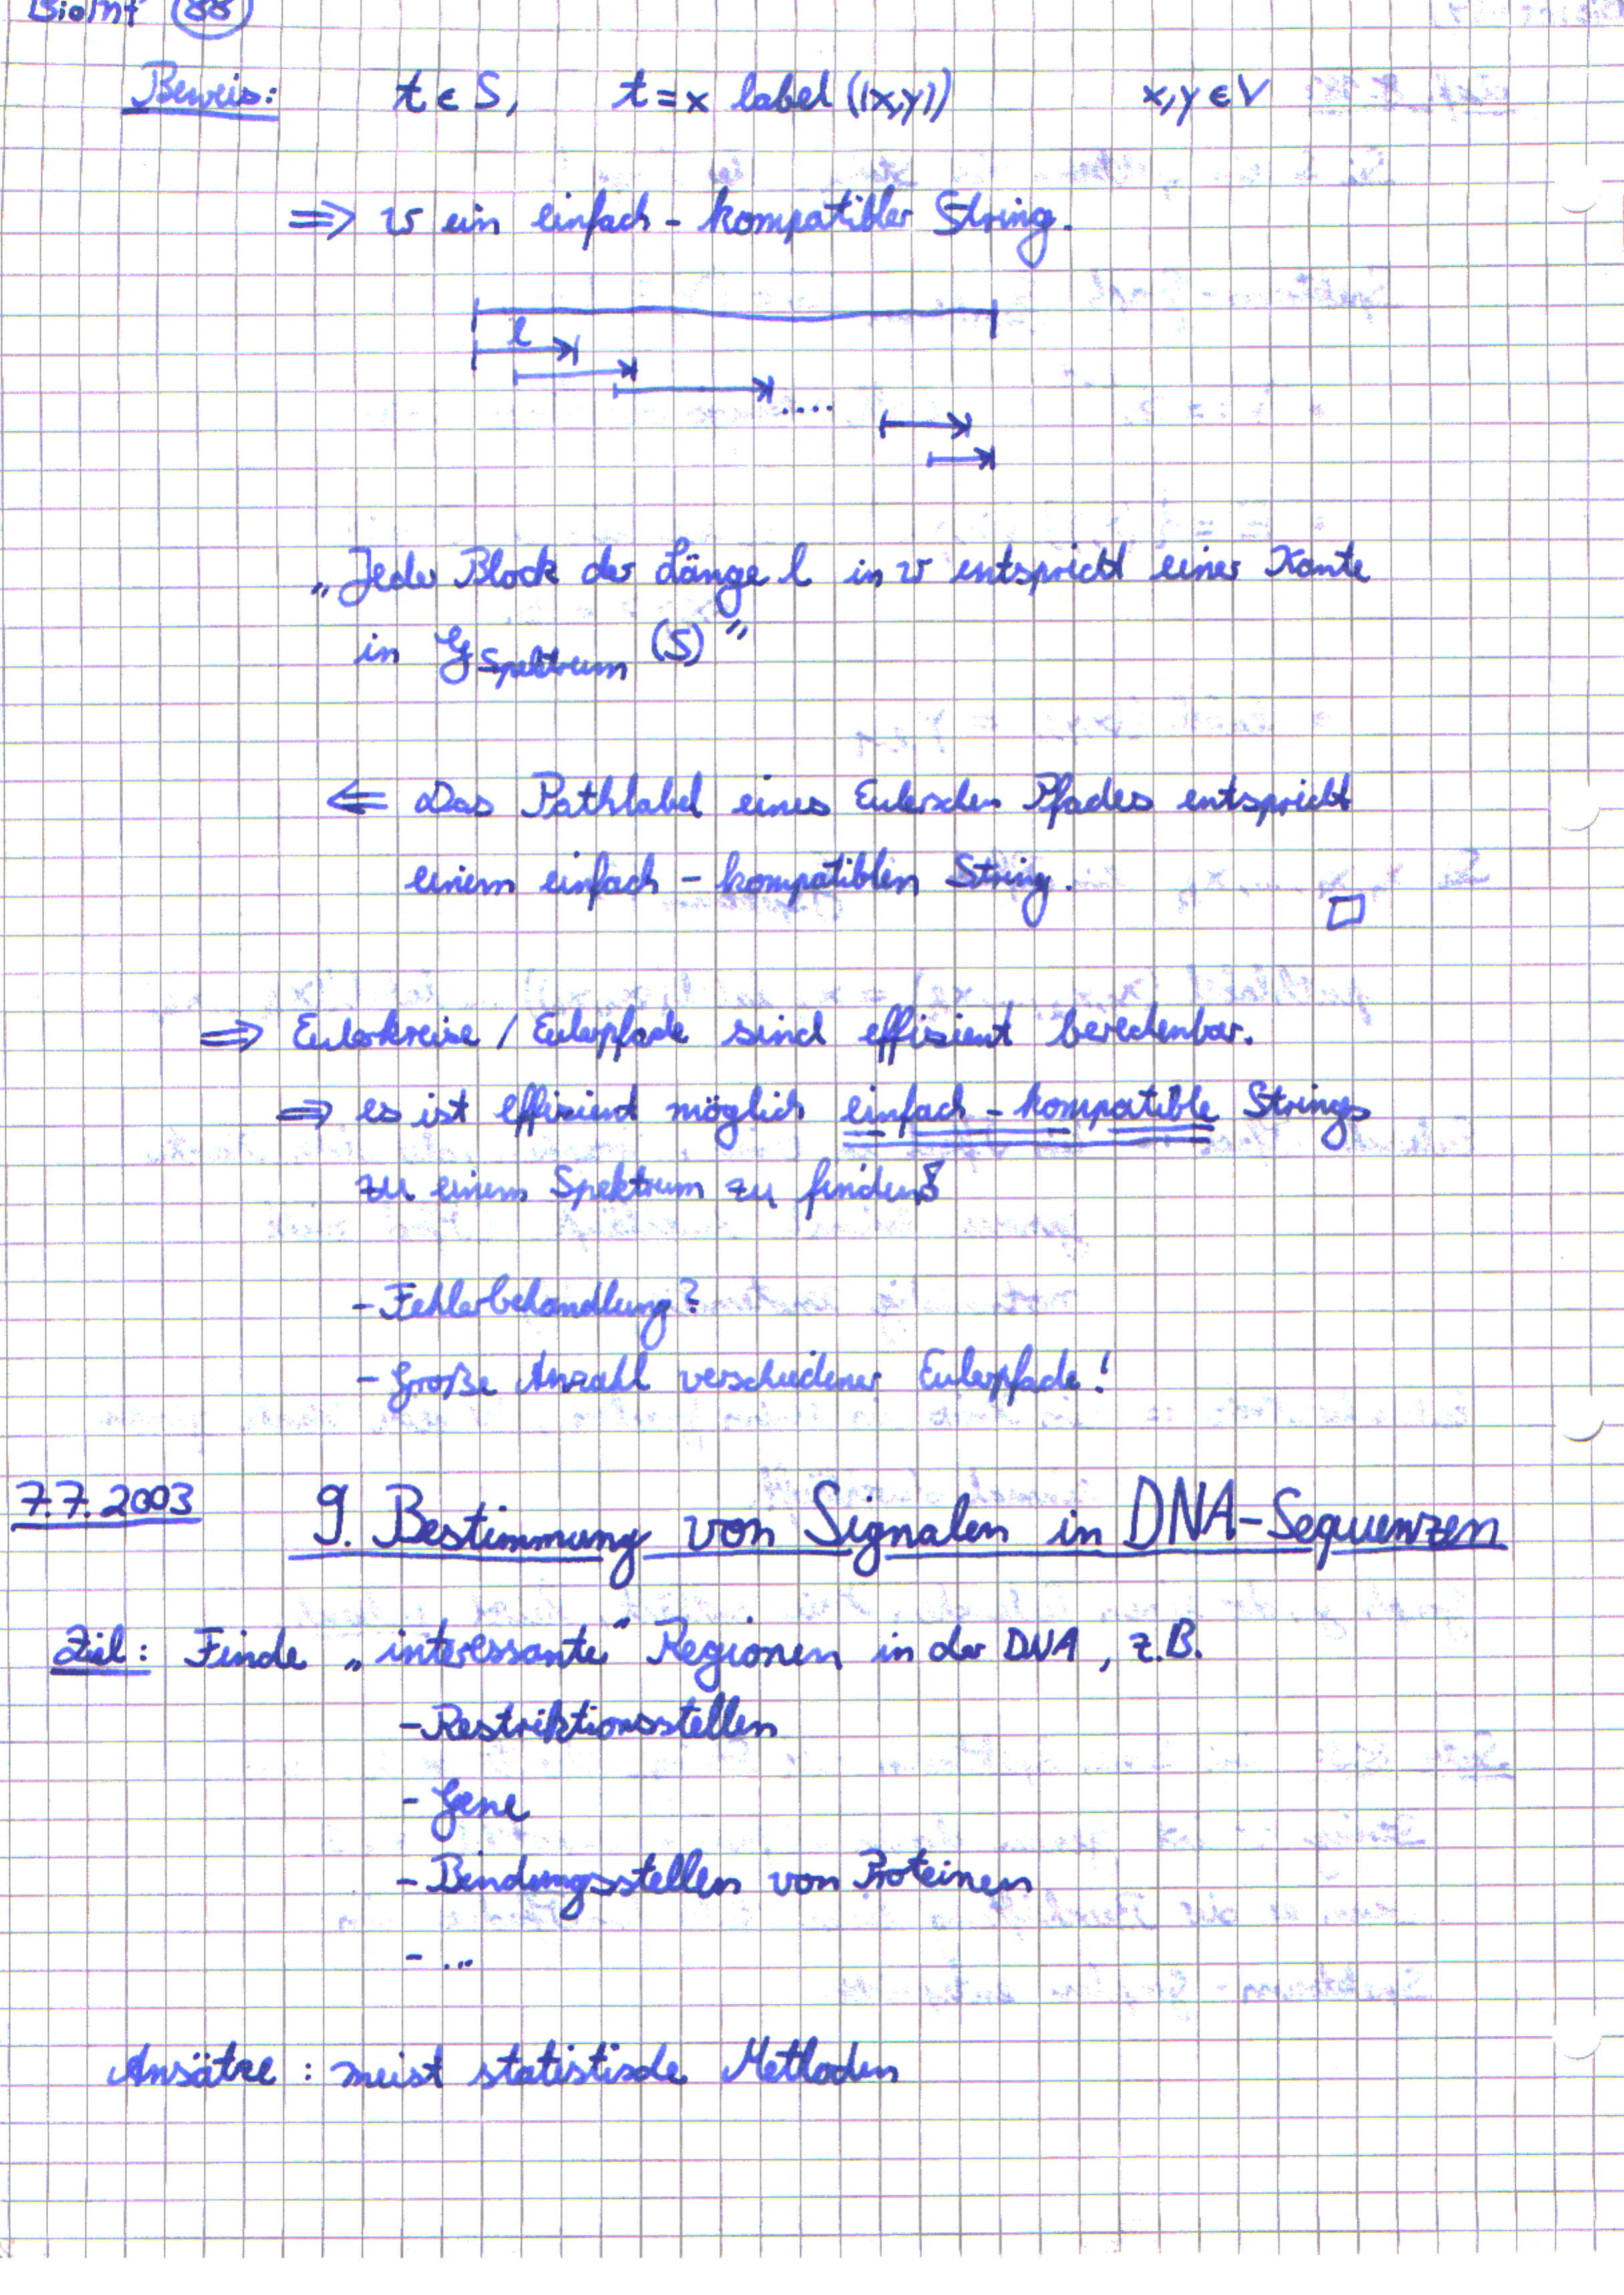 BioInf 88
Beweis: t ∈ S, t = x label ((x,y)) x,y ∈ V
⇒ w ein einfach-kompatibler String.
l
....
„Jeder Block der Länge l in w entspricht einer Kante
in G Spektrum (S)"
⇐ Das Pathlabel eines Eulerschen Pfades entspricht
einem einfach-kompatiblen String.
□
⇒ Eulerkreise / Eulerpfade sind effizient berechenbar.
⇒ es ist effizient möglich einfach-kompatible Strings
zu einem Spektrum zu finden!
- Fehlerbehandlung?
- Große Anzahl verschiedener Eulerpfade!
7.7.2003 9. Bestimmung von Signalen in DNA-Sequenzen
Ziel: Finde „interessante" Regionen in der DNA, z.B.
- Restriktionsstellen
- Gene
- Bindungsstellen von Proteinen
- ...
Ansätze: meist statistische Methoden